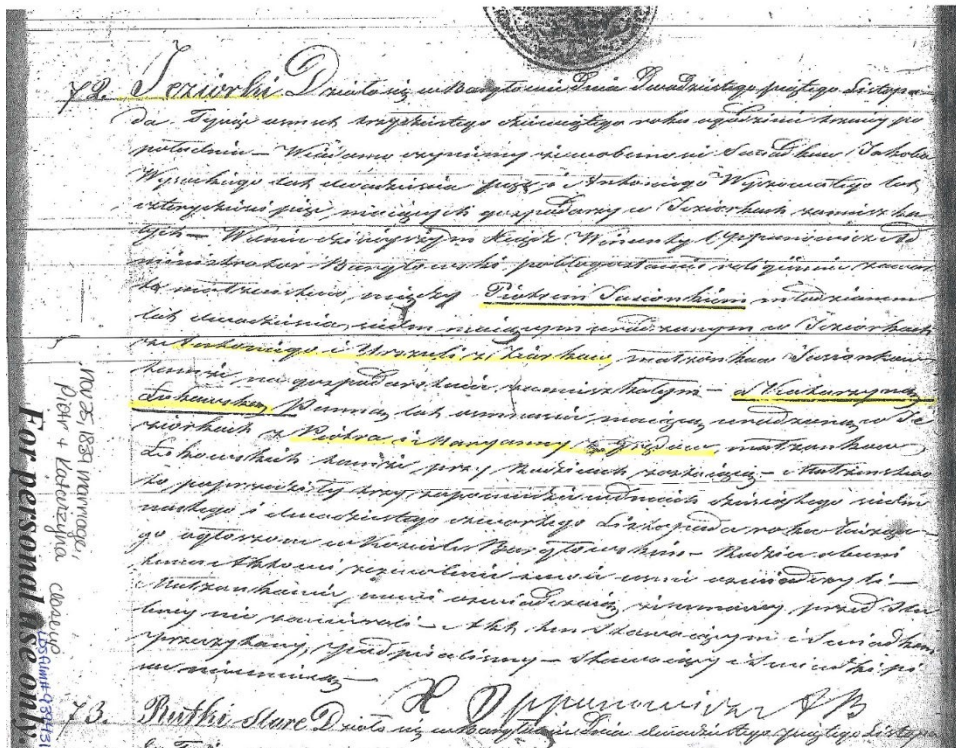 72. Jeziorki Działo się w Bargłowie Dnia Dwudziestego piątego Listopa-
da Tysiąc ośmset trzydziestego dziewiątego roku o godzinie trzeciej po
południu – Wiadomo czynimy że w obecności Świadków Jakóba
Wysockiego lat dwadzieścia pięć i Antoniego Wyszowatego lat
czterdzieści pięć maiących gospodarzy w Jeziorkach zamieszka
łych – W dniu dzisiejszym Xiądz Wincenty Oppanowicz Ad
ministrator Bargłowski pobłogosławił religijnie zawar
te małżeństwo między Piotrem Sasionkiem młodzianem
lat dwadzieścia siedm maiącym urodzonym w Jeziorkach
z Antoniego i Urszuli z małżonków
na gospodarstwie zamieszkałym – a Katarzyną
Łukowską Panną lat ośmnaście maiącą urodzoną w Je
ziorkach z Piotra i Maryanny z małżonków
Łukowskich przy Rodzicach zostaiącą – Małżeństwo
to poprzedziły trzy zapowiedzi w dniach dziesiątego siedm
nastego i dwudziestego czwartego Listopada roku bieżące-
go ogłoszone w Kościele Bargłowskim –
Aktowi zezwolenie swoie ustnie oświadczyli –
Małżonkowie nowi oświadczaią, iż umowy przed ślu
bney nie zawierali – Akt ten Stawaiącym i Świadkom
przeczytany, podpisaliśmy – Stawaiący i Świadki pi
sać nieumieią –
X Oppanowicz AB
73. Rutki Stare Działo się w Bargłowie Dnia dwudziestego piątego Listopa
Nov 25, 1839 marriage,
Piotr + Katarzyna
LDS film#
For personal use only.